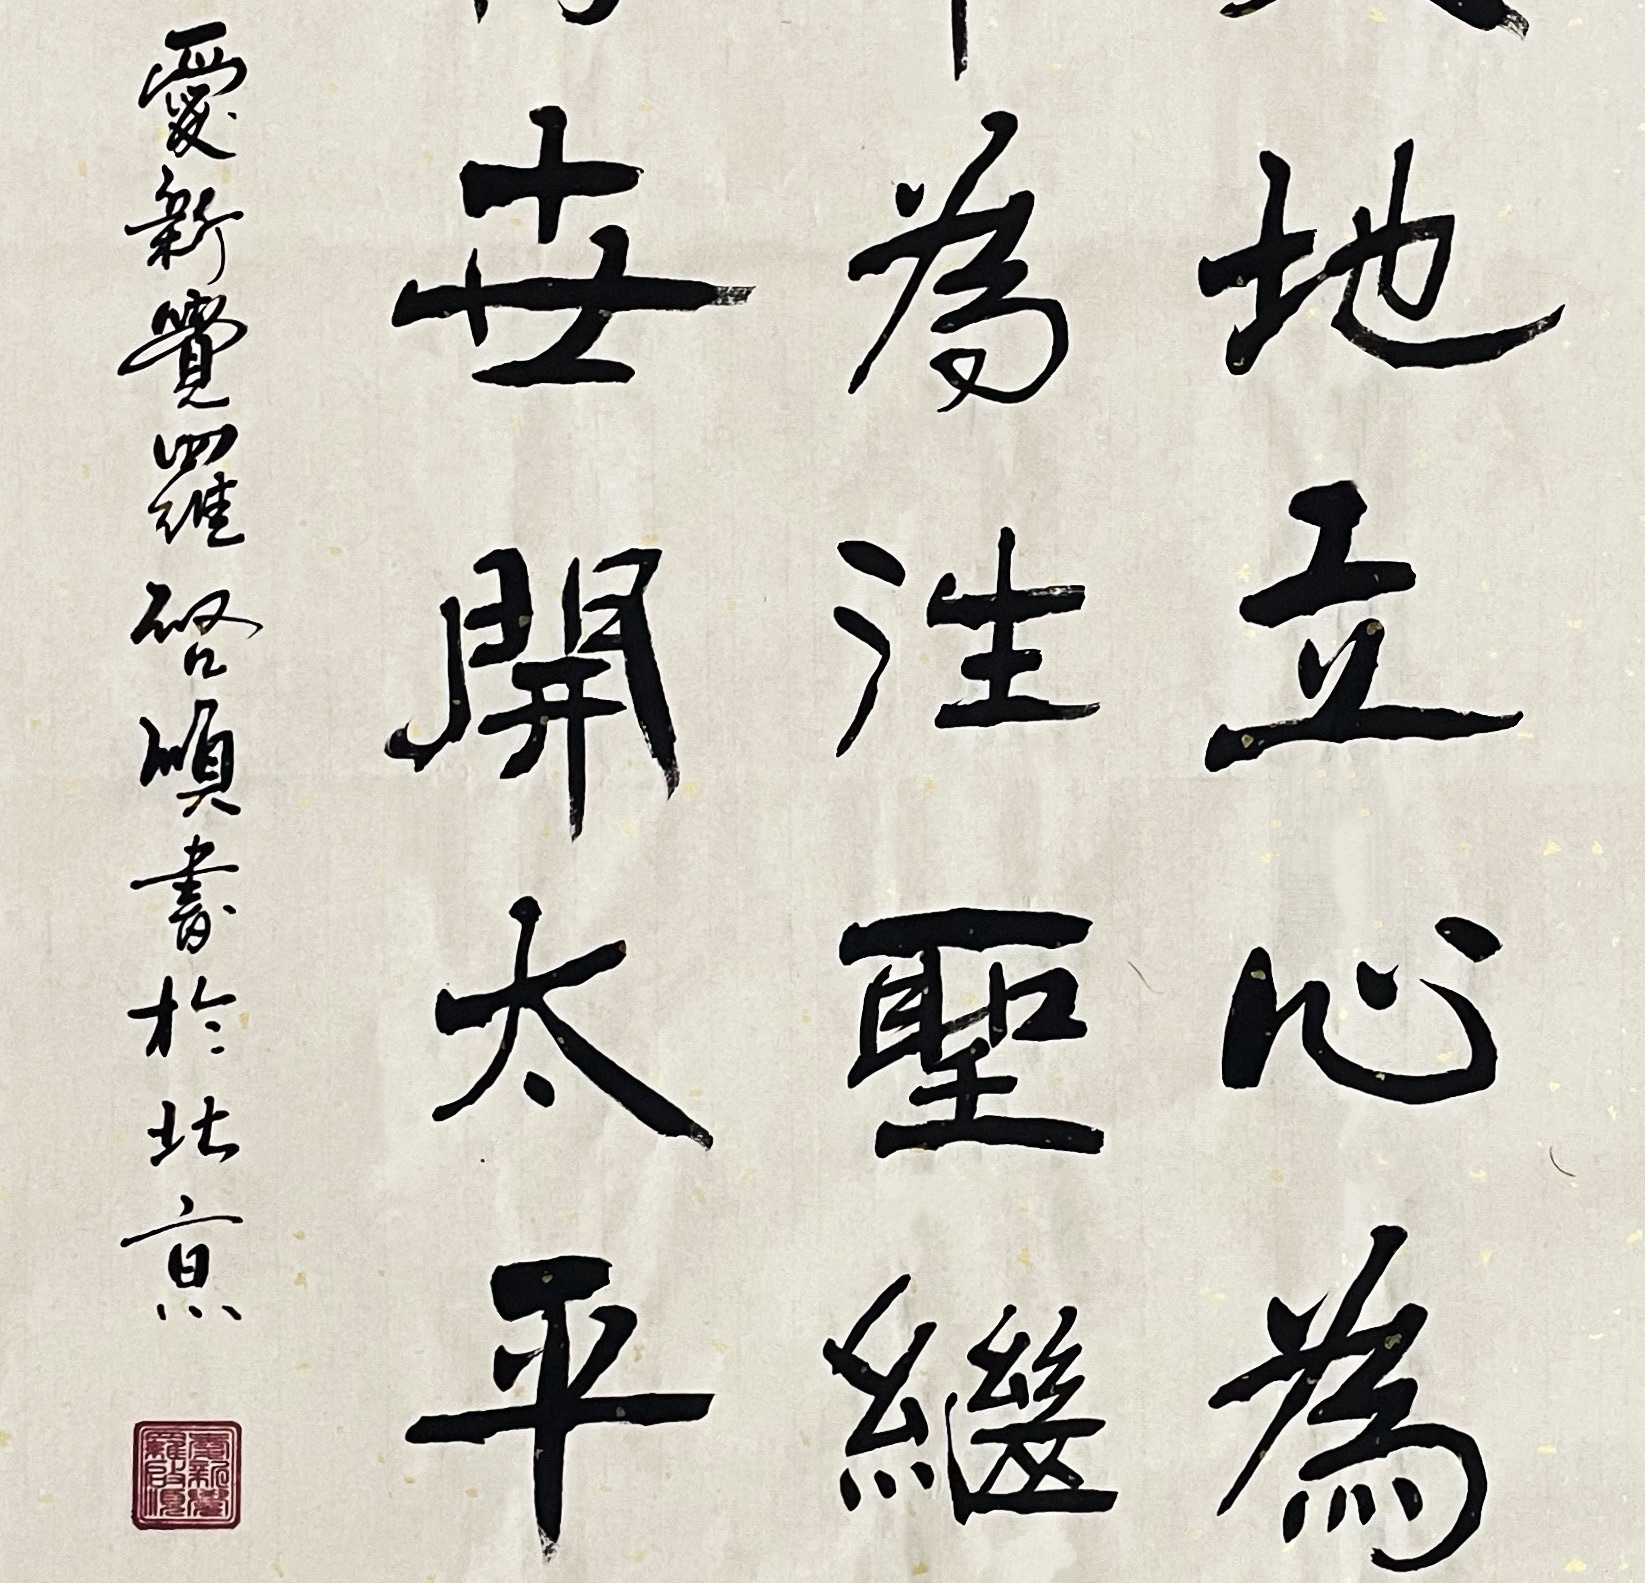 地立心為
為往聖繼
世開太平
愛新覺羅啓順書於北京
愛新覺羅啟順